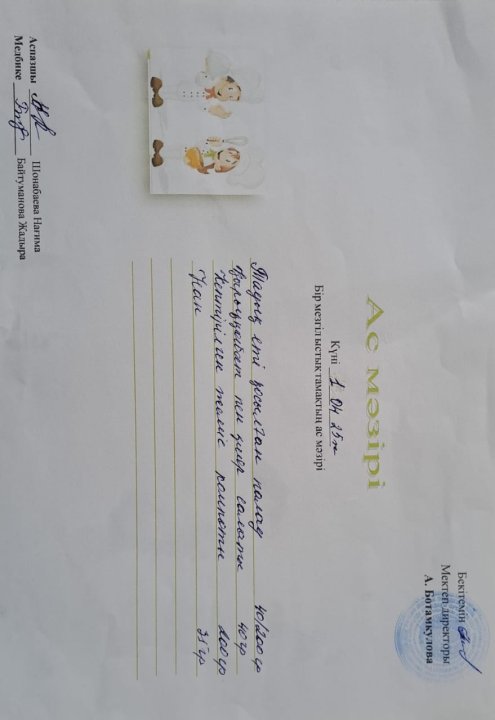 Бекітемін
Мектеп директоры
А. Ботамкулова
Ас мәзірі
Күні 1 04 25ж
Бір мезгіл ыстық тамақтың ас мәзірі
Тауық еті қосылған палау 40/200 гр
пен қияр салаты 40 гр
Кептірілген жеміс компоты 200 гр
Нан 25 гр
Аспазшы Шонабаева Нағима
Медбике Байтуманова Жадыра